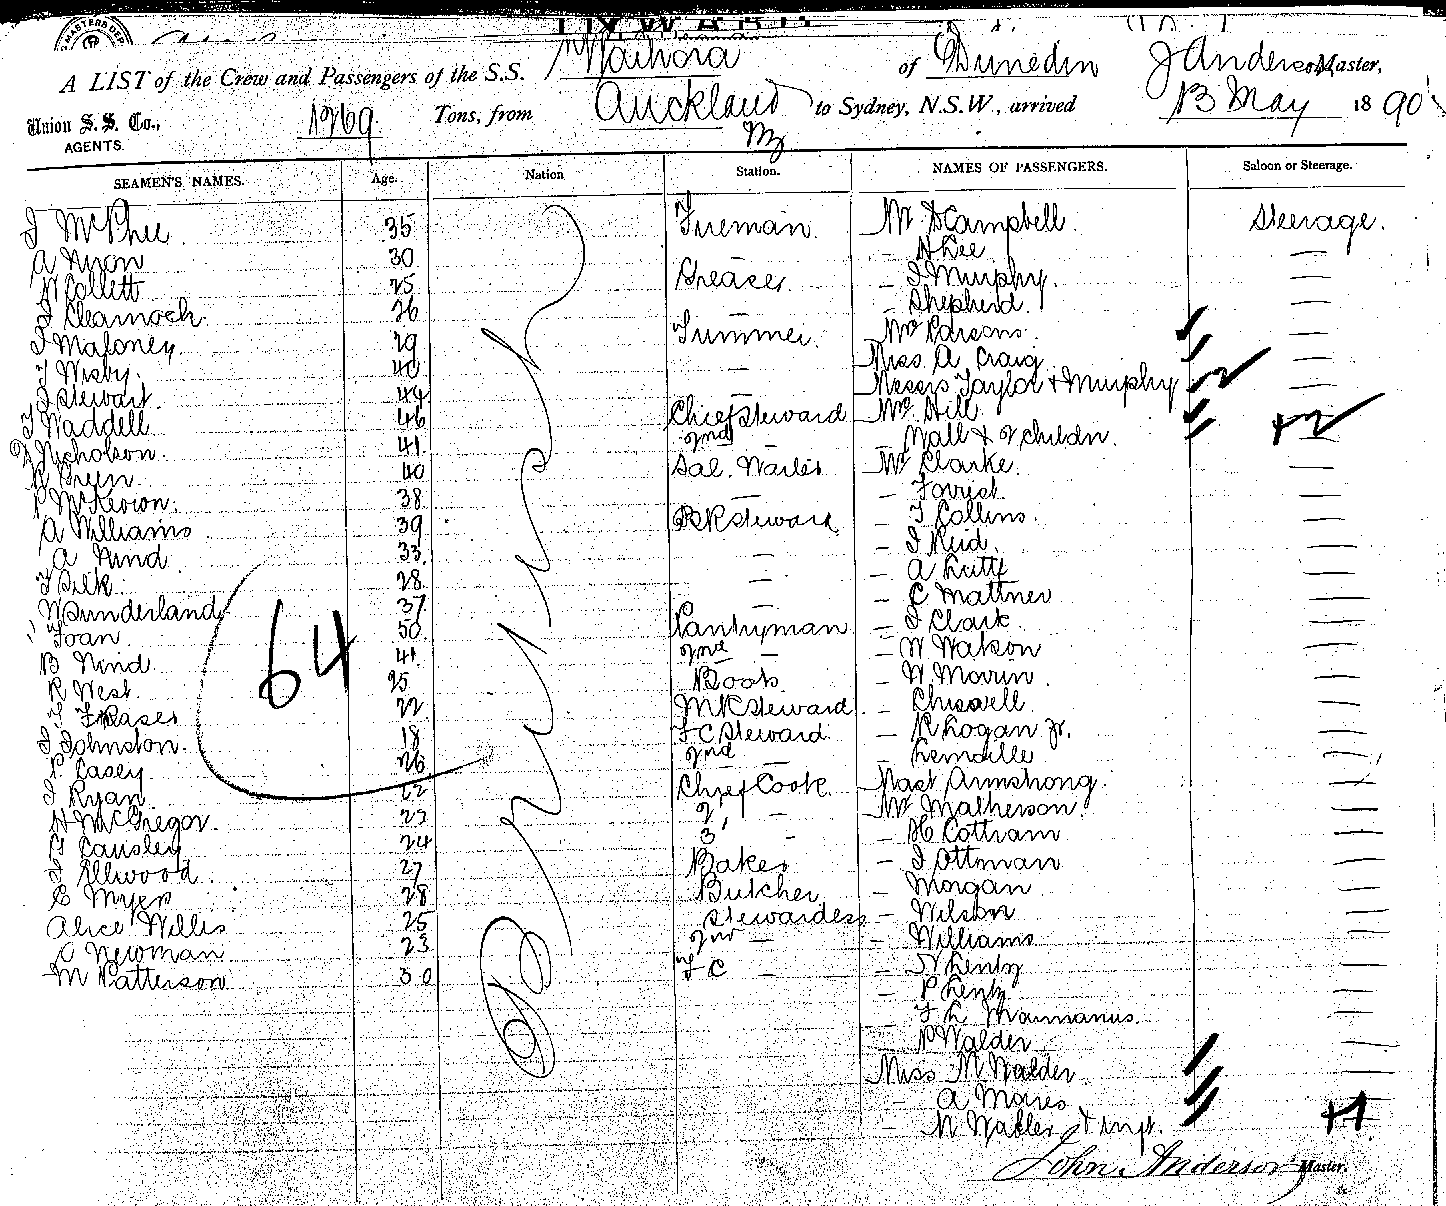 A LIST of the Crew and Passengers of the S.S. Waihora of Dunedin J Anderson Master,
Union S. S. Co., AGENTS. 1269 Tons, from Auckland NZ to Sydney, N.S.W., arrived 13 May 1890
SEAMEN'S NAMES. Age. Nation Station. NAMES OF PASSENGERS. Saloon or Steerage.
J McPhee 35 Fireman Mr D Campbell Steerage.
A 30 — H Lee —
W Collett 25 Greaser — J Murphy. —
26 — — Shepherd. —
J Maloney 29 Trimmer. Mrs Parsons. —
T Wisby. 40 — Miss A Craig —
J Stewart. 44 — Messrs Taylor & Murphy —
J Waddell 46 Chief Steward Mrs Hill —
J Nicholson. 41 2nd — Wall & 2 childn. + 2
W Green 40 Sal. Waiter Mr Clarke. —
P McKeown. 38 — — Forrest. —
A Williams 39 R R Steward — T Collins. —
A Hind 33 — — J Reid. —
F Silk. 28 — — A —
W Sunderland 37 — — C Mattner —
" Toan 50 Pantryman — J Clark —
B Hind 41 2nd — — W Watson —
R West. 25 Boots — W —
Fraser 22 M R Steward — Chiswell. —
J Johnston. 18 F C Steward — R Logan Jr. —
P. Casey 26 2nd — — —
J Ryan 22 Chief Cook Mast Armstrong. —
H McGregor. 23 2' — Mr Matherson. —
24 3' — — H Cottram —
Ellwood. 27 Baker — J Ottman —
C Myers 28 Butcher — Morgan —
Alice Willis 25 Stewardess — Wilson —
O Newman 23 2nd — — Williams —
M Patterson 30 F C — — —
— P —
— F L —
— Walder —
Miss M Walder —
— A —
— & Inft. + 1
British
64
John Anderson Master.